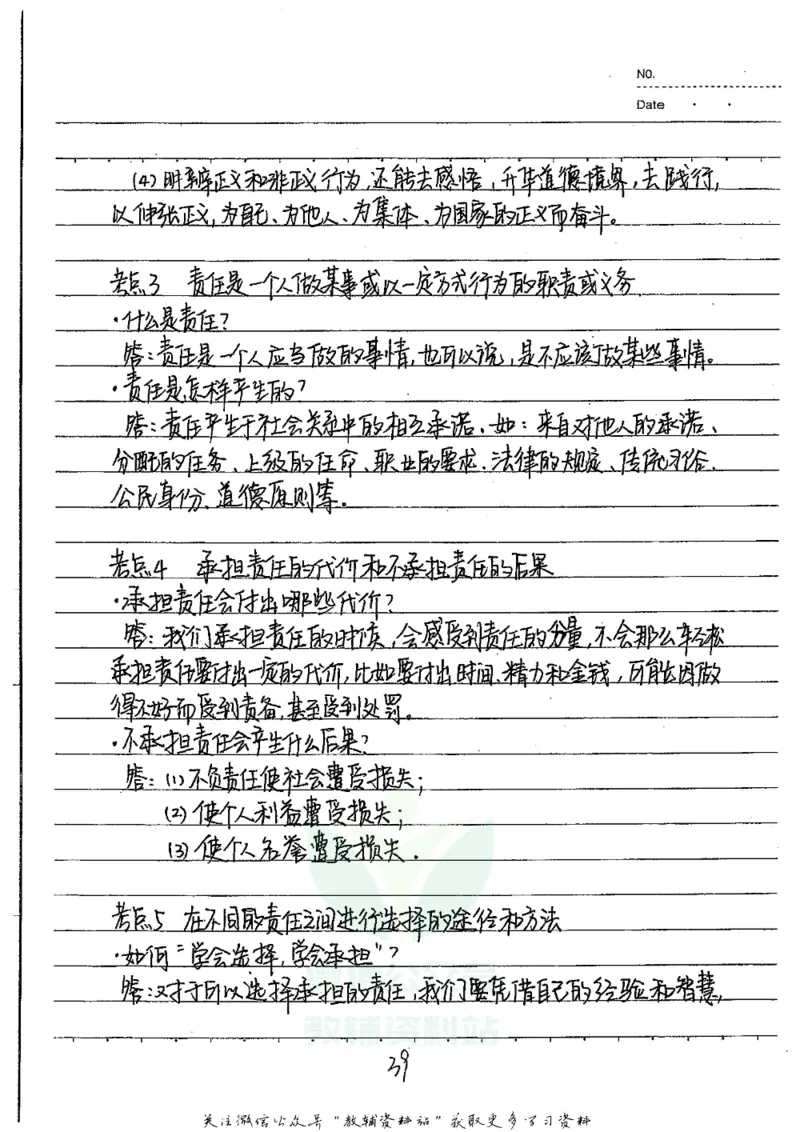 NO.
Date
(4)明辨正义和非正义行为,还能去感悟,升华道德境界,去践行,
以伸张正义,为自己、为他人、为集体、为国家的正义而奋斗。
考点3 责任是一个人做某事或以一定方式行为的职责或义务
·什么是责任?
答:责任是一个人应当做的事情,也可以说,是不应该做某些事情。
·责任是怎样产生的?
答:责任产生于社会关系中的相互承诺。如:来自对他人的承诺、
分配的任务、上级的任命、职业的要求、法律的规定、传统习俗、
公民身份、道德原则等。
考点4 承担责任的代价和不承担责任的后果
·承担责任会付出哪些代价?
答:我们承担责任的时候,会感受到责任的分量,不会那么轻松
承担责任要付出一定的代价,比如要付出时间、精力和金钱,可能因做
得不好而受到责备,甚至受到处罚。
·不承担责任会产生什么后果?
答:(1)不负责任使社会遭受损失;
(2)使个人利益遭受损失;
(3)使个人名誉遭受损失.
考点5 在不同的责任之间进行选择的途径和方法
·如何“学会选择,学会承担”?
答:对于可以选择承担的责任,我们要凭借自己的经验和智慧,
教辅资料站
39
关注微信公众号“教辅资料站”获取更多学习资料